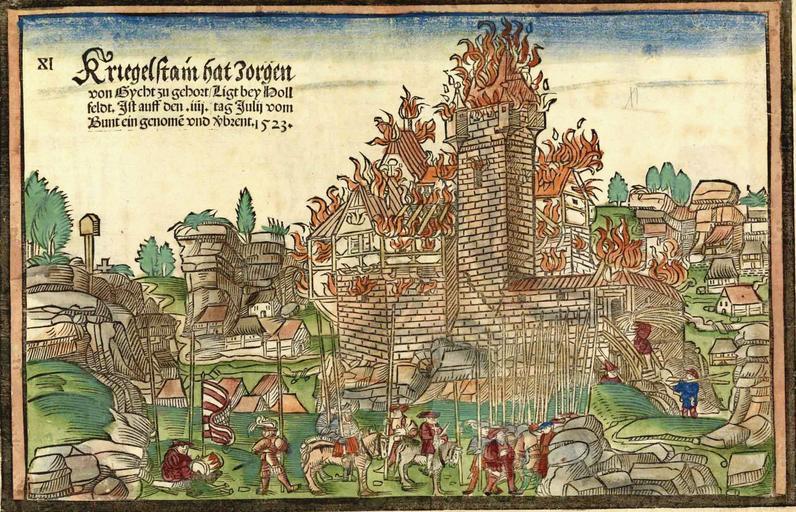 XI
Kriegelstain hat Jorgen
von Gycht zu gehort/Ligt bey Holl
feldt. Ist auff den .iiij. tag Julij vom
Bunt ein genomē vnd v̈brent. 1523.